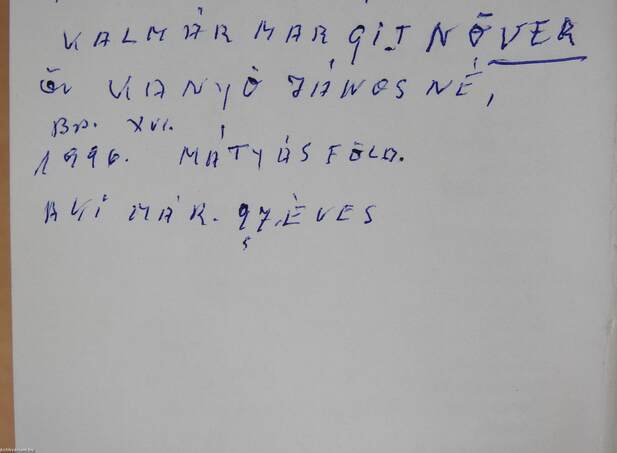 KALMÁR MARGIT NŐVÉR
ÖV KANYÓ JÁNOSNÉ,
Bp. XVI.
1996. MÁTYÁSFÖLD.
AKI MÁR. 97, ÉVES